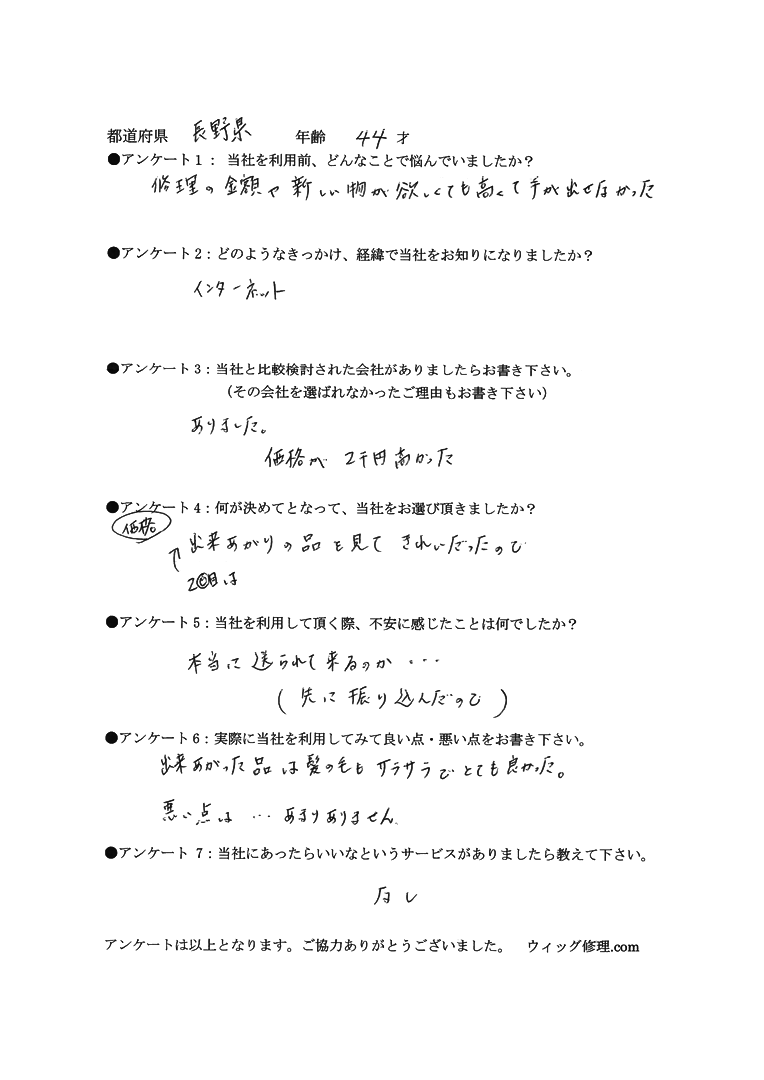 都道府県 長野県 年齢 44才
●アンケート1： 当社を利用前、どんなことで悩んでいましたか？
修理の金額や新しい物が欲しくても高くて手が出せなかった
●アンケート2：どのようなきっかけ、経緯で当社をお知りになりましたか？
インターネット
●アンケート3：当社と比較検討された会社がありましたらお書き下さい。
（その会社を選ばれなかったご理由もお書き下さい）
ありました。
価格が 2千円高かった
●アンケート4：何が決めてとなって、当社をお選び頂きましたか？
価格
出来あがりの品を見てきれいだったので
2回目は
●アンケート5：当社を利用して頂く際、不安に感じたことは何でしたか？
本当に送られて来るのか・・・
(先に振り込んだので)
●アンケート6：実際に当社を利用してみて良い点・悪い点をお書き下さい。
出来あがった品は髪の毛もサラサラでとても良かった。
悪い点は…あまりありません
●アンケート 7：当社にあったらいいなというサービスがありましたら教えて下さい。
なし
アンケートは以上となります。ご協力ありがとうございました。 ウィッグ修理.com